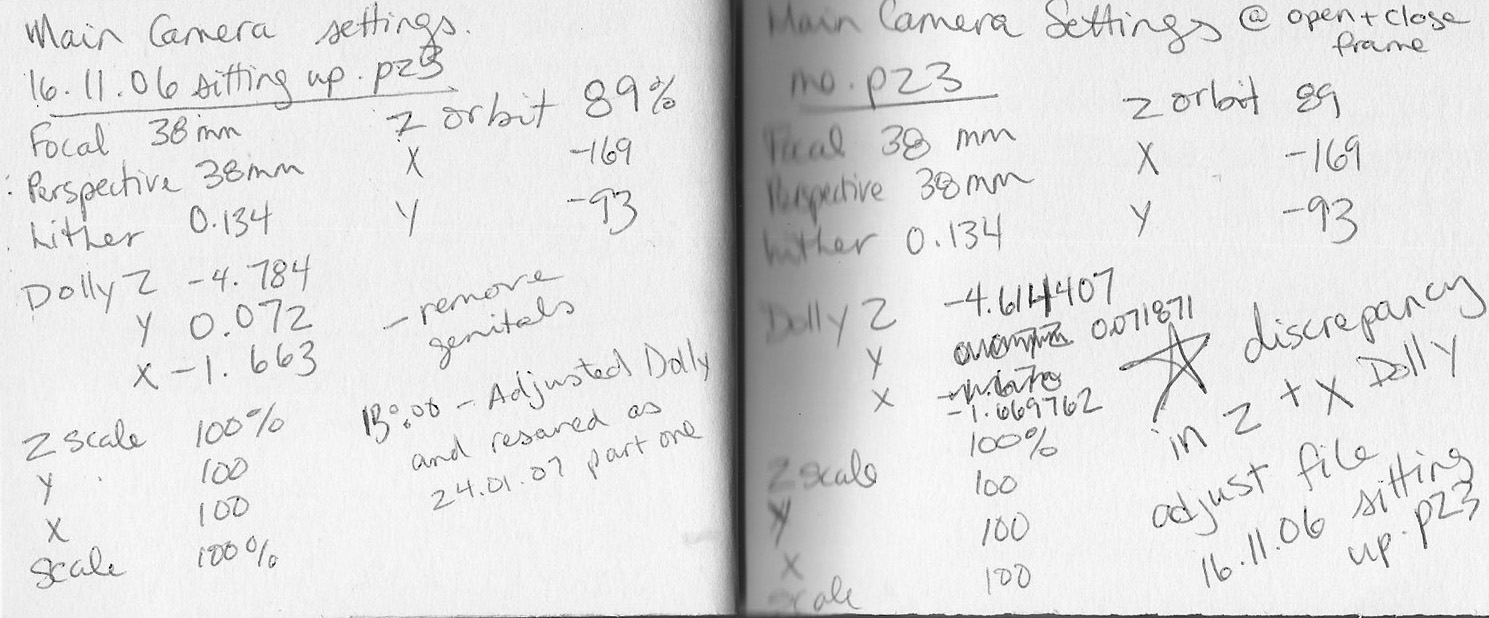 Main Camera settings.
16.11.06 sitting up.pz3
Focal 38mm
Perspective 38mm
hither 0.134
Z orbit 89%
X -169
Y -93
Dolly Z -4.784
Y 0.072
X -1.663
- remove
genitals
Z scale 100%
Y 100
X 100
scale 100%
- Adjusted Dolly
and resaved as
24.01.07 part one
Main Camera Settings @ open + close
frame
mo.pz3
Focal 38 mm
Perspective 38mm
hither 0.134
Z orbit 89
X -169
Y -93
Dolly Z -4.614407
Y 0.071871
X -1.669762
discrepancy
in Z + X Dolly
adjust file
16.11.06 sitting
up.pz3
Z scale 100%
Y 100
X 100
scale 100